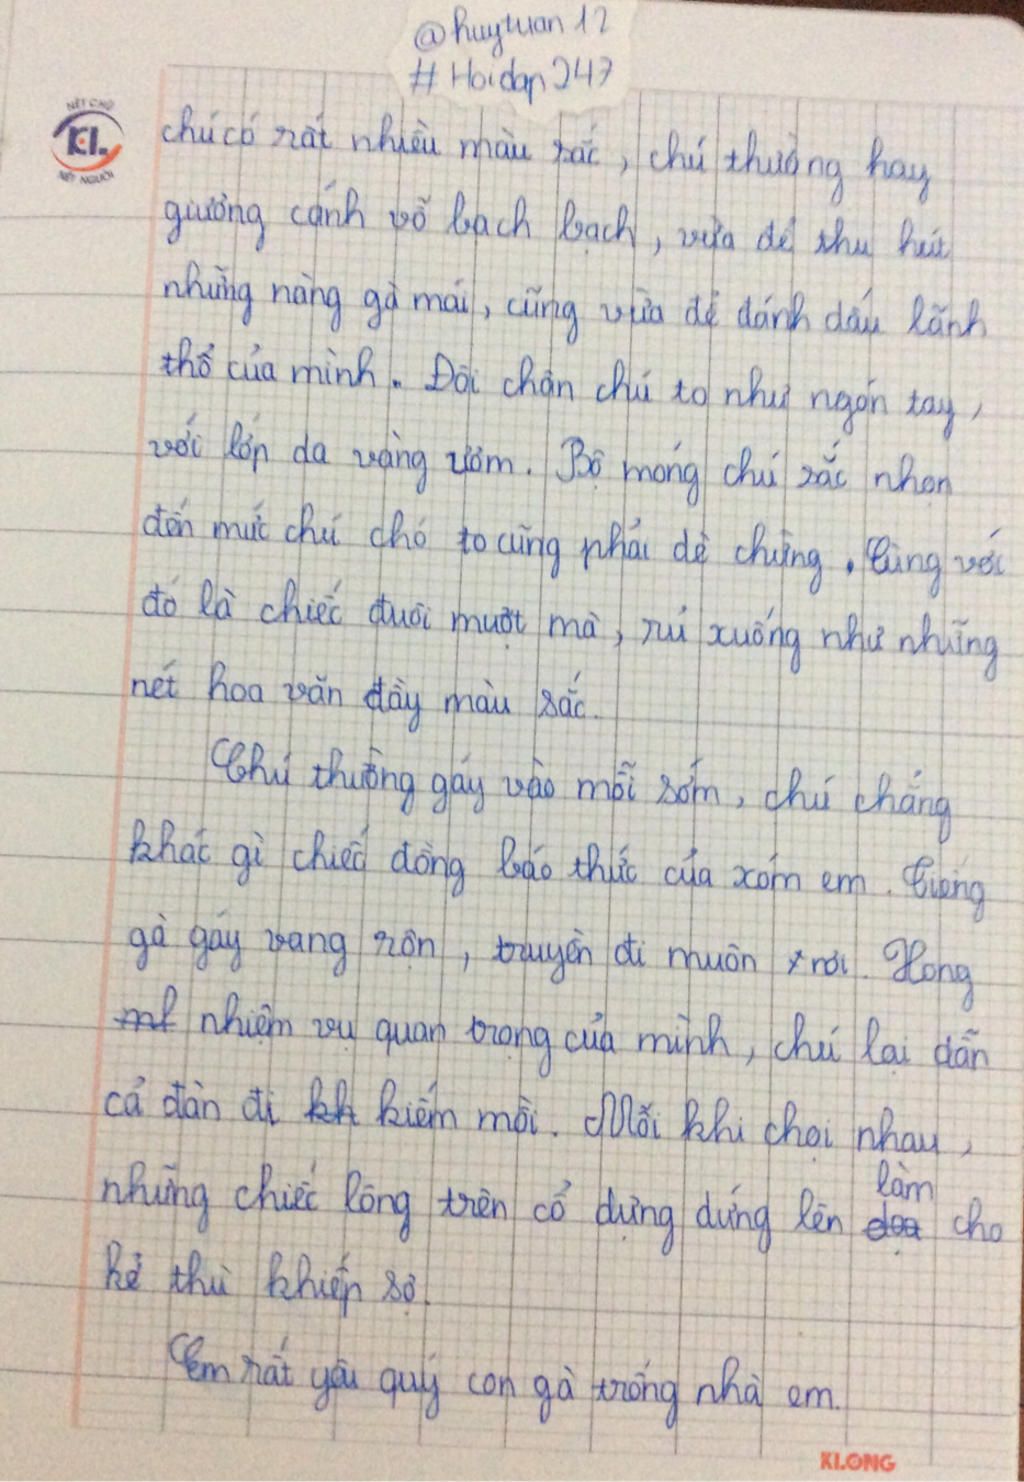 @huytuan12
#Hoidap247
NÉT CHỮ
KL.
NẾT NGƯỜI
chú có rất nhiều màu sắc, chú thường hay
gưỡng cánh vỗ bạch bạch, vừa để thu hút
những nàng gà mái, cũng vừa để đánh dấu lãnh
thổ của mình. Đôi chân chú to như ngón tay,
với lớp da vàng ươm. Bộ móng chú sắc nhọn
đến mức chú chó to cũng phải dè chừng. Cùng với
đó là chiếc đuôi mượt mà, rủ xuống như những
nét hoa văn đầy màu sắc.
Chú thường gáy vào mỗi sớm, chú chẳng
khác gì chiếc đồng báo thức của xóm em. Tiếng
gà gáy vang rộn, truyền đi muôn nơi. Xong
nhiệm vụ quan trọng của mình, chú lại dẫn
cả đàn đi kiếm mồi. Mỗi khi chọi nhau,
những chiếc lông trên cổ dựng đứng lên làm cho
kẻ thù khiếp sợ.
Em rất yêu quý con gà trống nhà em.
KLONG